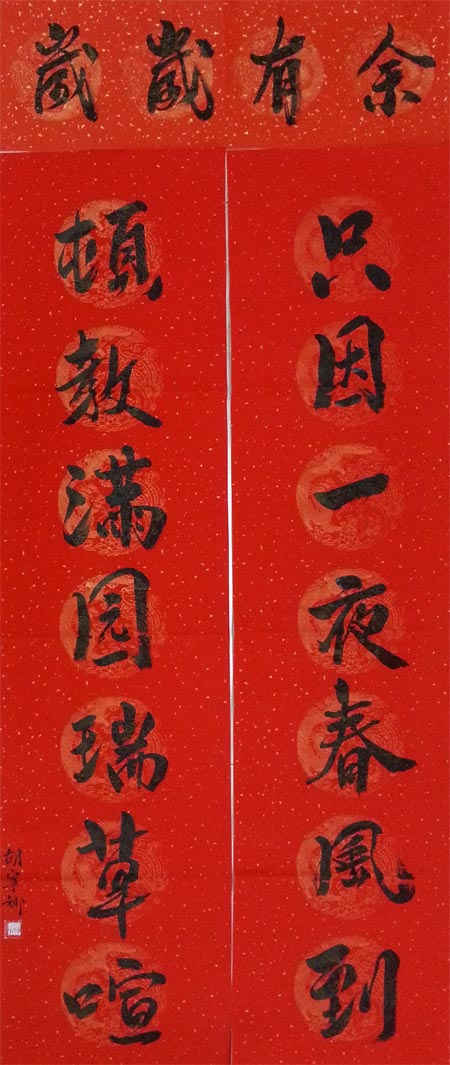 歲歲有余
只因一夜春風到
頓教滿园瑞草喧